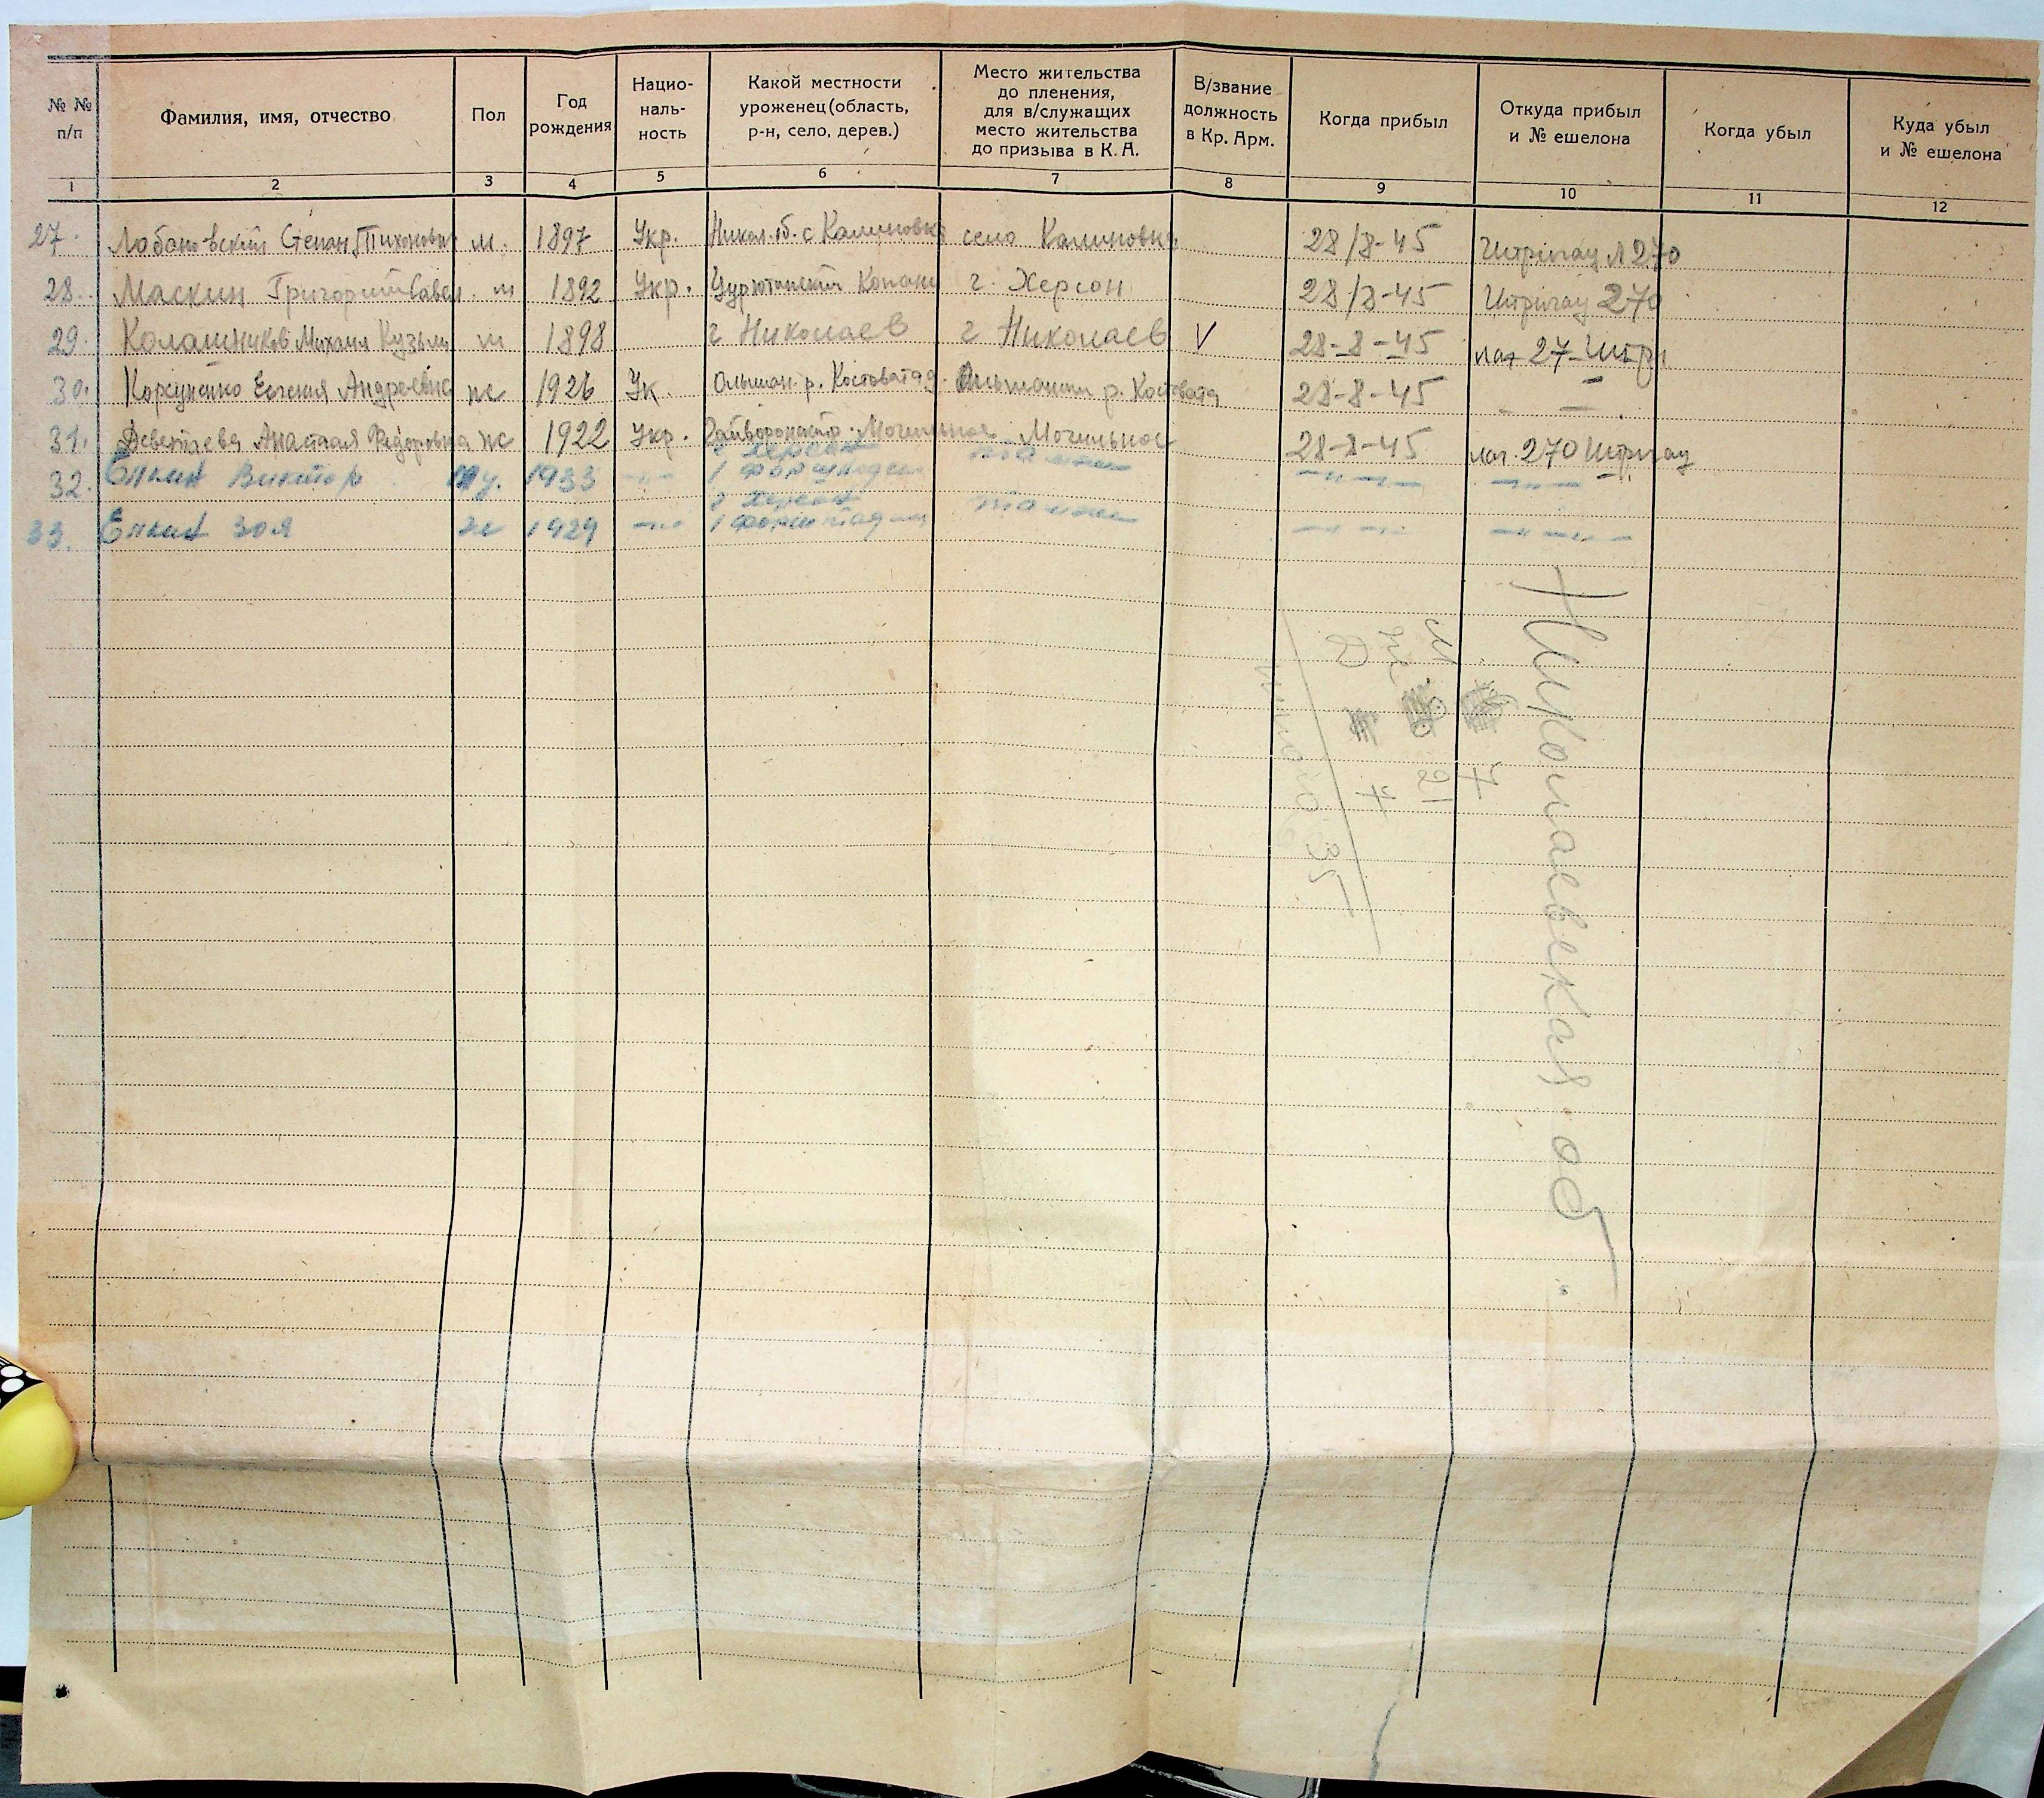 № № п/п
Фамилия, имя, отчество
Пол
Год рождения
Нацио-
наль-
ность
Какой местности
уроженец (область,
р-н, село, дерев.)
Место жительства
до пленения,
для в/служащих
место жительства
до призыва в К. А.
В/звание
должность
в Кр. Арм.
Когда прибыл
Откуда прибыл
и № ешелона
Когда убыл
Куда убыл
и № ешелона
1 2 3 4 5 6 7 8 9 10 11 12
27. Лобановский Степан Тихонович м. 1897 Укр. с Калиновка село Калиновка 28/8-45 Штригау Л 270
28. Маскин Григорий Павел. м 1892 Укр. г. Херсон 28/8-45 Штригау 270
29. Колашников Михаил Кузьм м 1898 г Николаев г Николаев V 28-8-45 лаг 27 Штри
30. Корсуненко Евгения Андреевна ж 1926 Ук. Ольшан. р. Костоватая р. Костовата 28-8-45 - -
31. Анастасия Федоровна ж 1922 Укр. Могильное Могильное 28-8-45 лаг. 270 Штригау
32. Виктор му. 1933 -"- г Херсон там же -"- -"- -"- -"-
33. Зоя ж 1929 -"- г Херсон там же -"- -"- -"- -"-
Николаевская об
М 7
Ж 21
Д 7
итого 35